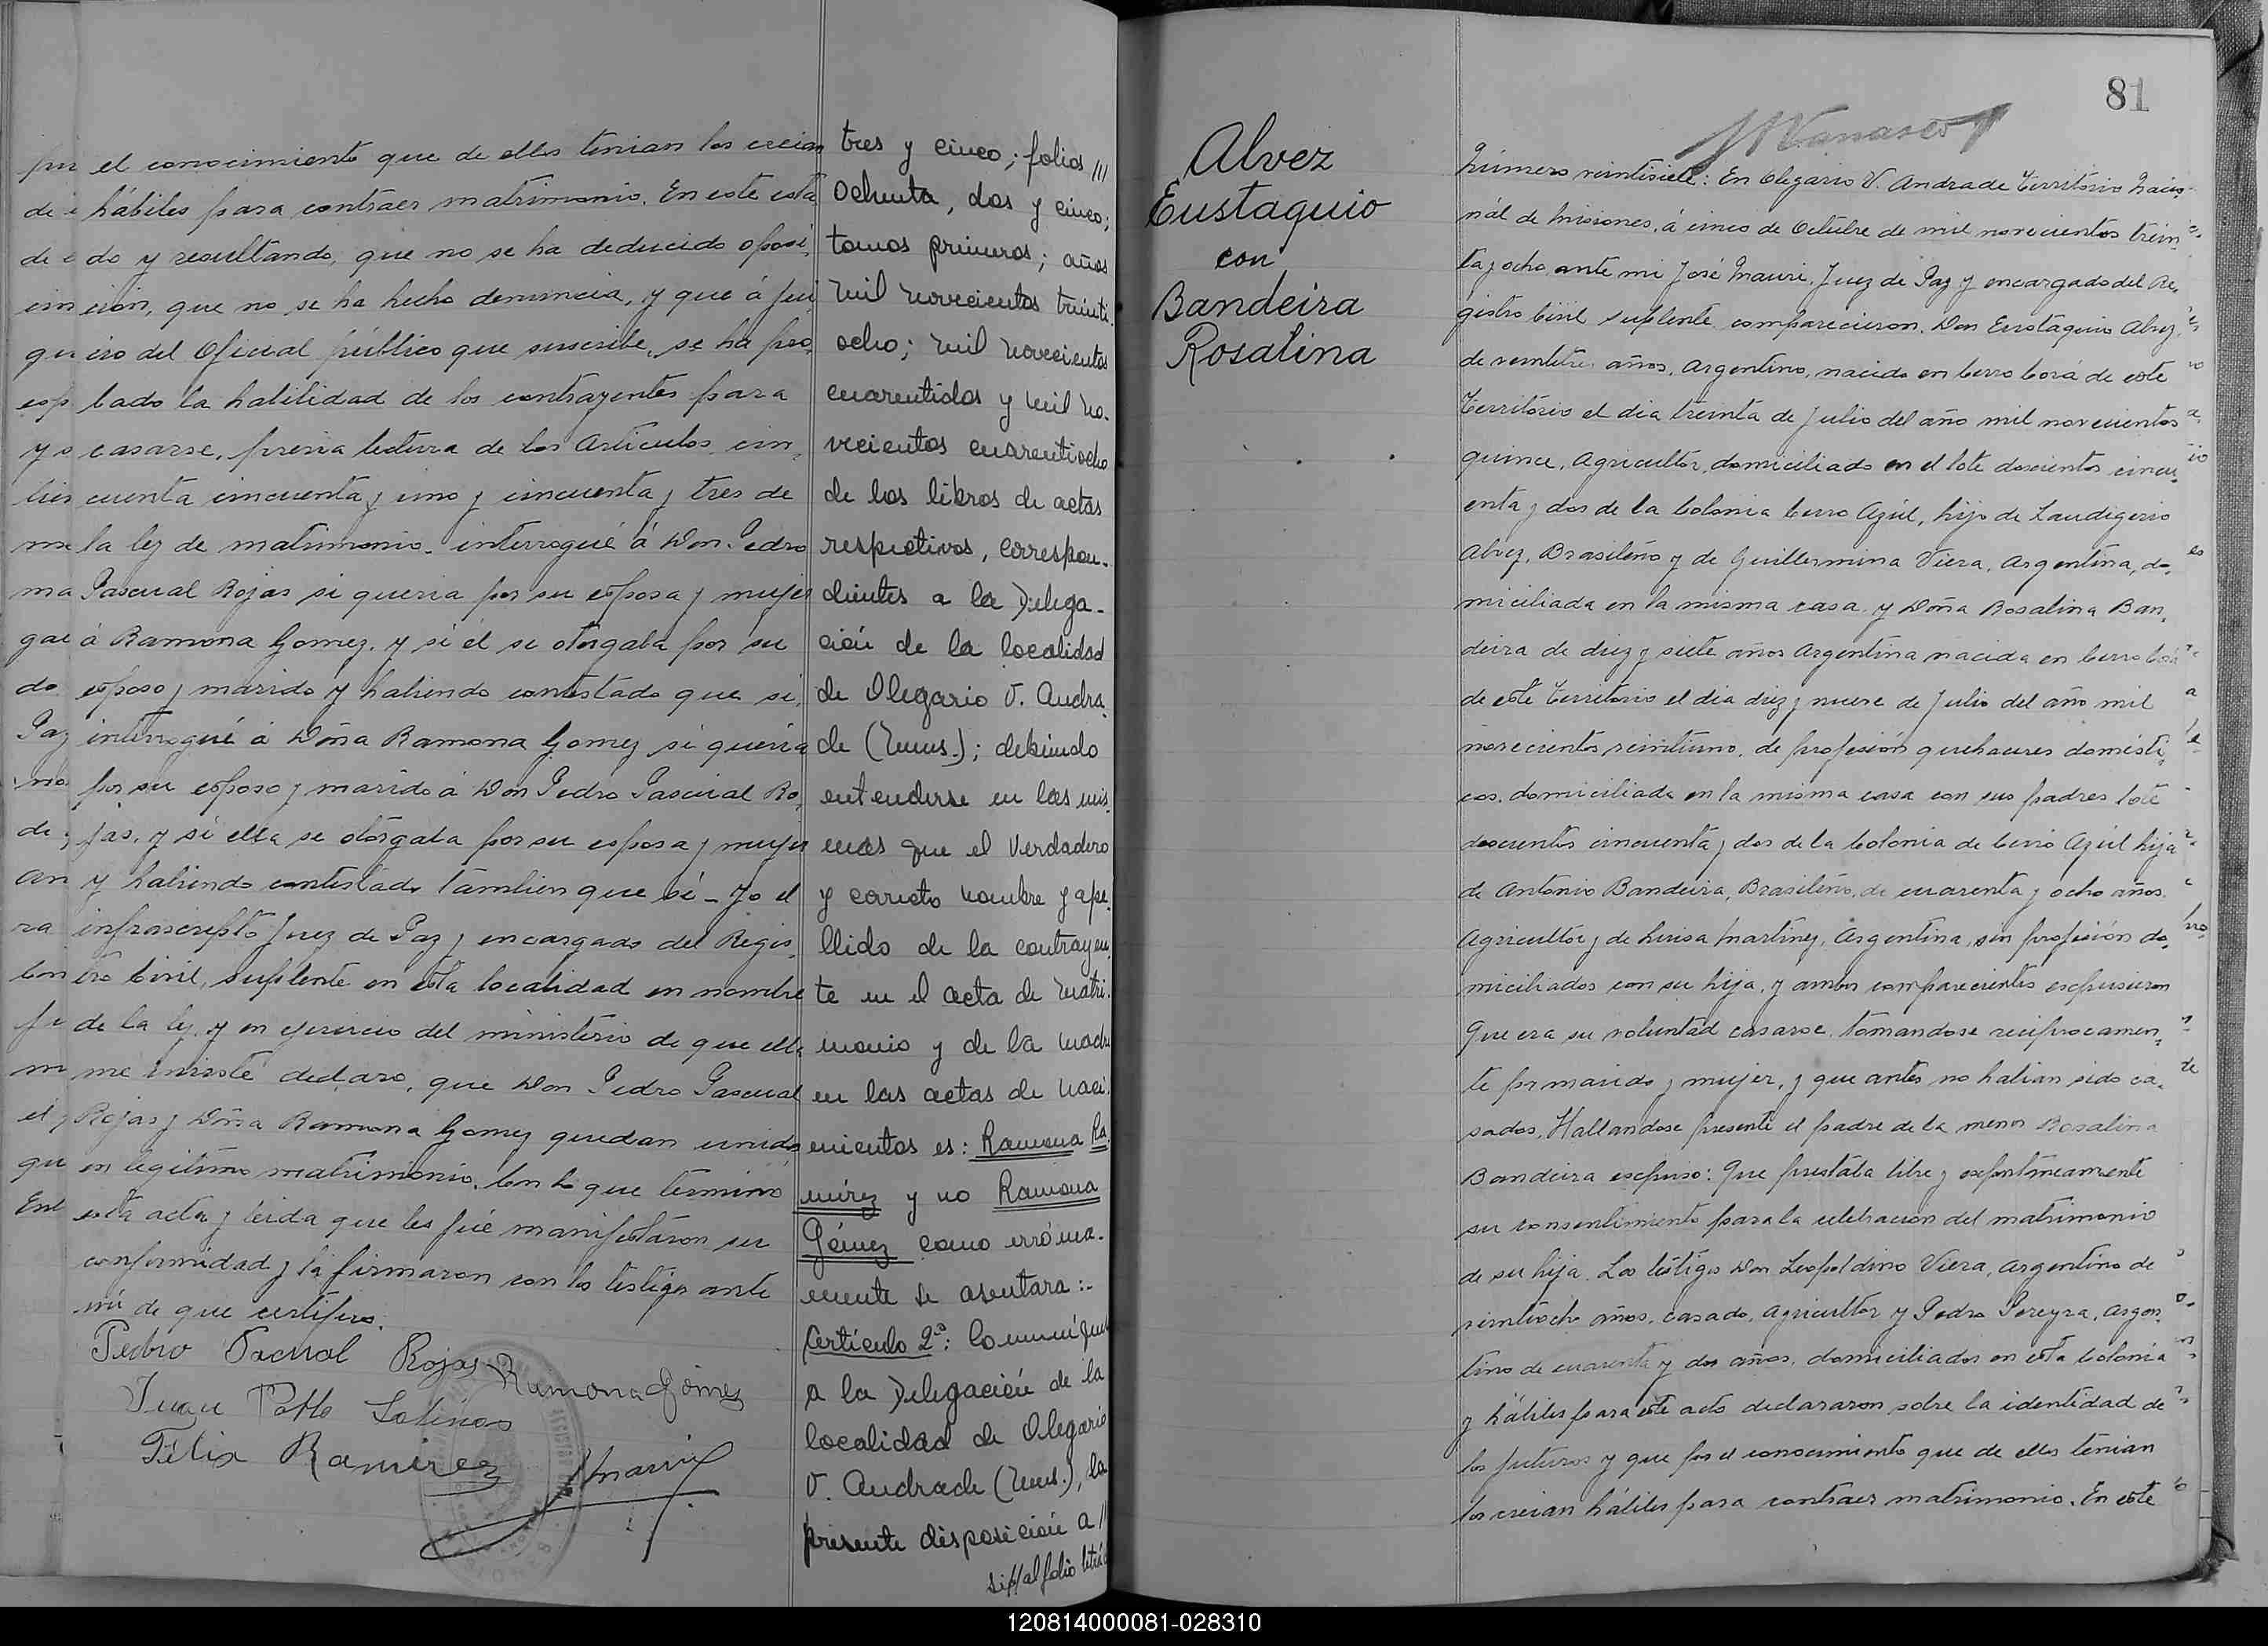 por el conocimiento que de ellos tenian los creian
hábiles para contraer matrimonio. En este esta
do y resultando, que no se ha deducido oposi,
cion, que no se ha hecho denuncia, y que á jui
cio del Oficial público que suscribe, se ha pro,
bado la habilidad de los contrayentes para
casarse, previa lectura de los Articulos cin,
cuenta cincuenta y uno y cincuenta y tres de
la ley de matrimonio. interrogué á Don Pedro
Pascual Rojas si queria por su esposa y mujer
á Ramona Gomez, y si él se otorgaba por su
esposo y marido y habiendo contestado que si,
interrogué á Doña Ramona Gomez si queria
por su esposo y marido á Don Pedro Pascual Ro,
jas, y si ella se otorgaba por su esposa y mujer
y habiendo contestado tambien que si - Yo el
infrascripto Juez de Paz y encargado del Regis,
tro Civil, suplente en esta localidad en nombre
de la ley, y en ejercicio del ministerio de que ella
me inviste declaro, que Don Pedro Pascual
Rojas y Doña Ramona Gomez quedan unidos
en legitimo matrimonio. Con lo que terminó
esta acta y leida que les fué manifestaron su
conformidad y la firmaron con los testigos ante
mi de que certifico.
Pedro Pascual Rojas Ramona Gómez
Juan Pablo Salinas
Félix Ramirez
tres y cinco; folios ///
ochenta, dos y cinco;
tomos primeros; años
mil novecientos treinti
ocho; mil novecientos
cuarentidos y mil no-
vecientos cuarentiocho
de los libros de actas
respectivos, correspon-
dientes a la Delega-
ción de la localidad
de Olegario V. Andra
de (Mnes.); debiendo
entenderse en las mis
mas que el verdadero
y correcto nombre y ape
llido de la contrayen
te en el acta de matri
monio y de la madre
en las actas de naci
mientos es: Ramona Ra
mírez y no Ramona
Gómez como erróna-
mente se asentara:-
Artículo 2º: Comuníque
a la Delegación de la
localidad de Olegario
V. Andrade (Mnes.), la
presente disposición a //
sip//al folio
81
Alvez
Eustaquio
con
Bandeira
Rosalina
Número veintisiete: En Olegario V. Andrade Territorio Nacio-
nál de Misiones, á cinco de Octubre de mil novecientos trein
ta y ocho ante mi José Mauri, Juez de Paz y encargado del Re,
gistro Civil suplente comparecieron. Don Eustaquio Alvez,
de veintitres años, Argentino, nacido en Cerro Corá de este
Territorio el dia treinta de Julio del año mil novecientos
quince, Agricultor, domiciliado en el lote doscientos cincu,
enta y dos de la Colonia Cerro Azúl, hijo de Laudigerio
Alvez, Brasileño y de Guillermina Viera, Argentina, do,
miciliada en la misma casa y Doña Rosalina Ban,
deira de diez y siete años Argentina nacida en Cerro Corá
de este Territorio el dia diez y nueve de Julio del año mil
novecientos veintiuno, de profesión quehaceres domésti,
cos, domiciliada en la misma casa con sus padres lote
doscientos cincuenta y dos de la Colonia de Cerro Azúl hija
de Antonio Bandeira, Brasileño, de cuarenta y ocho años.
Agricultor y de Luisa Martinez, Argentina, sin profesión do,
miciliados con su hija, y ambos comparecientes expusieron
Que era su voluntad casarse, tomandose reciprocamen,
te por marido y mujer, y que antes no habian sido ca,
sados. Hallandose presente el padre de la menor Rosalina
Bandeira expuso: Que prestaba libre y espontáneamente
su consentimiento para la celebración del matrimonio
de su hija. Los testigos Don Leopoldino Viera, Argentino de
veintiocho años, casado, Agricultor y Pedro Pereyra, Argen,
tino de cuarenta y dos años, domiciliados en esta Colonia
y hábiles para este acto declararon sobre la identidad de
los futuros y que por el conocimiento que de ellos tenian
los creian hábiles para contraer matrimonio. En este
120814000081-028310